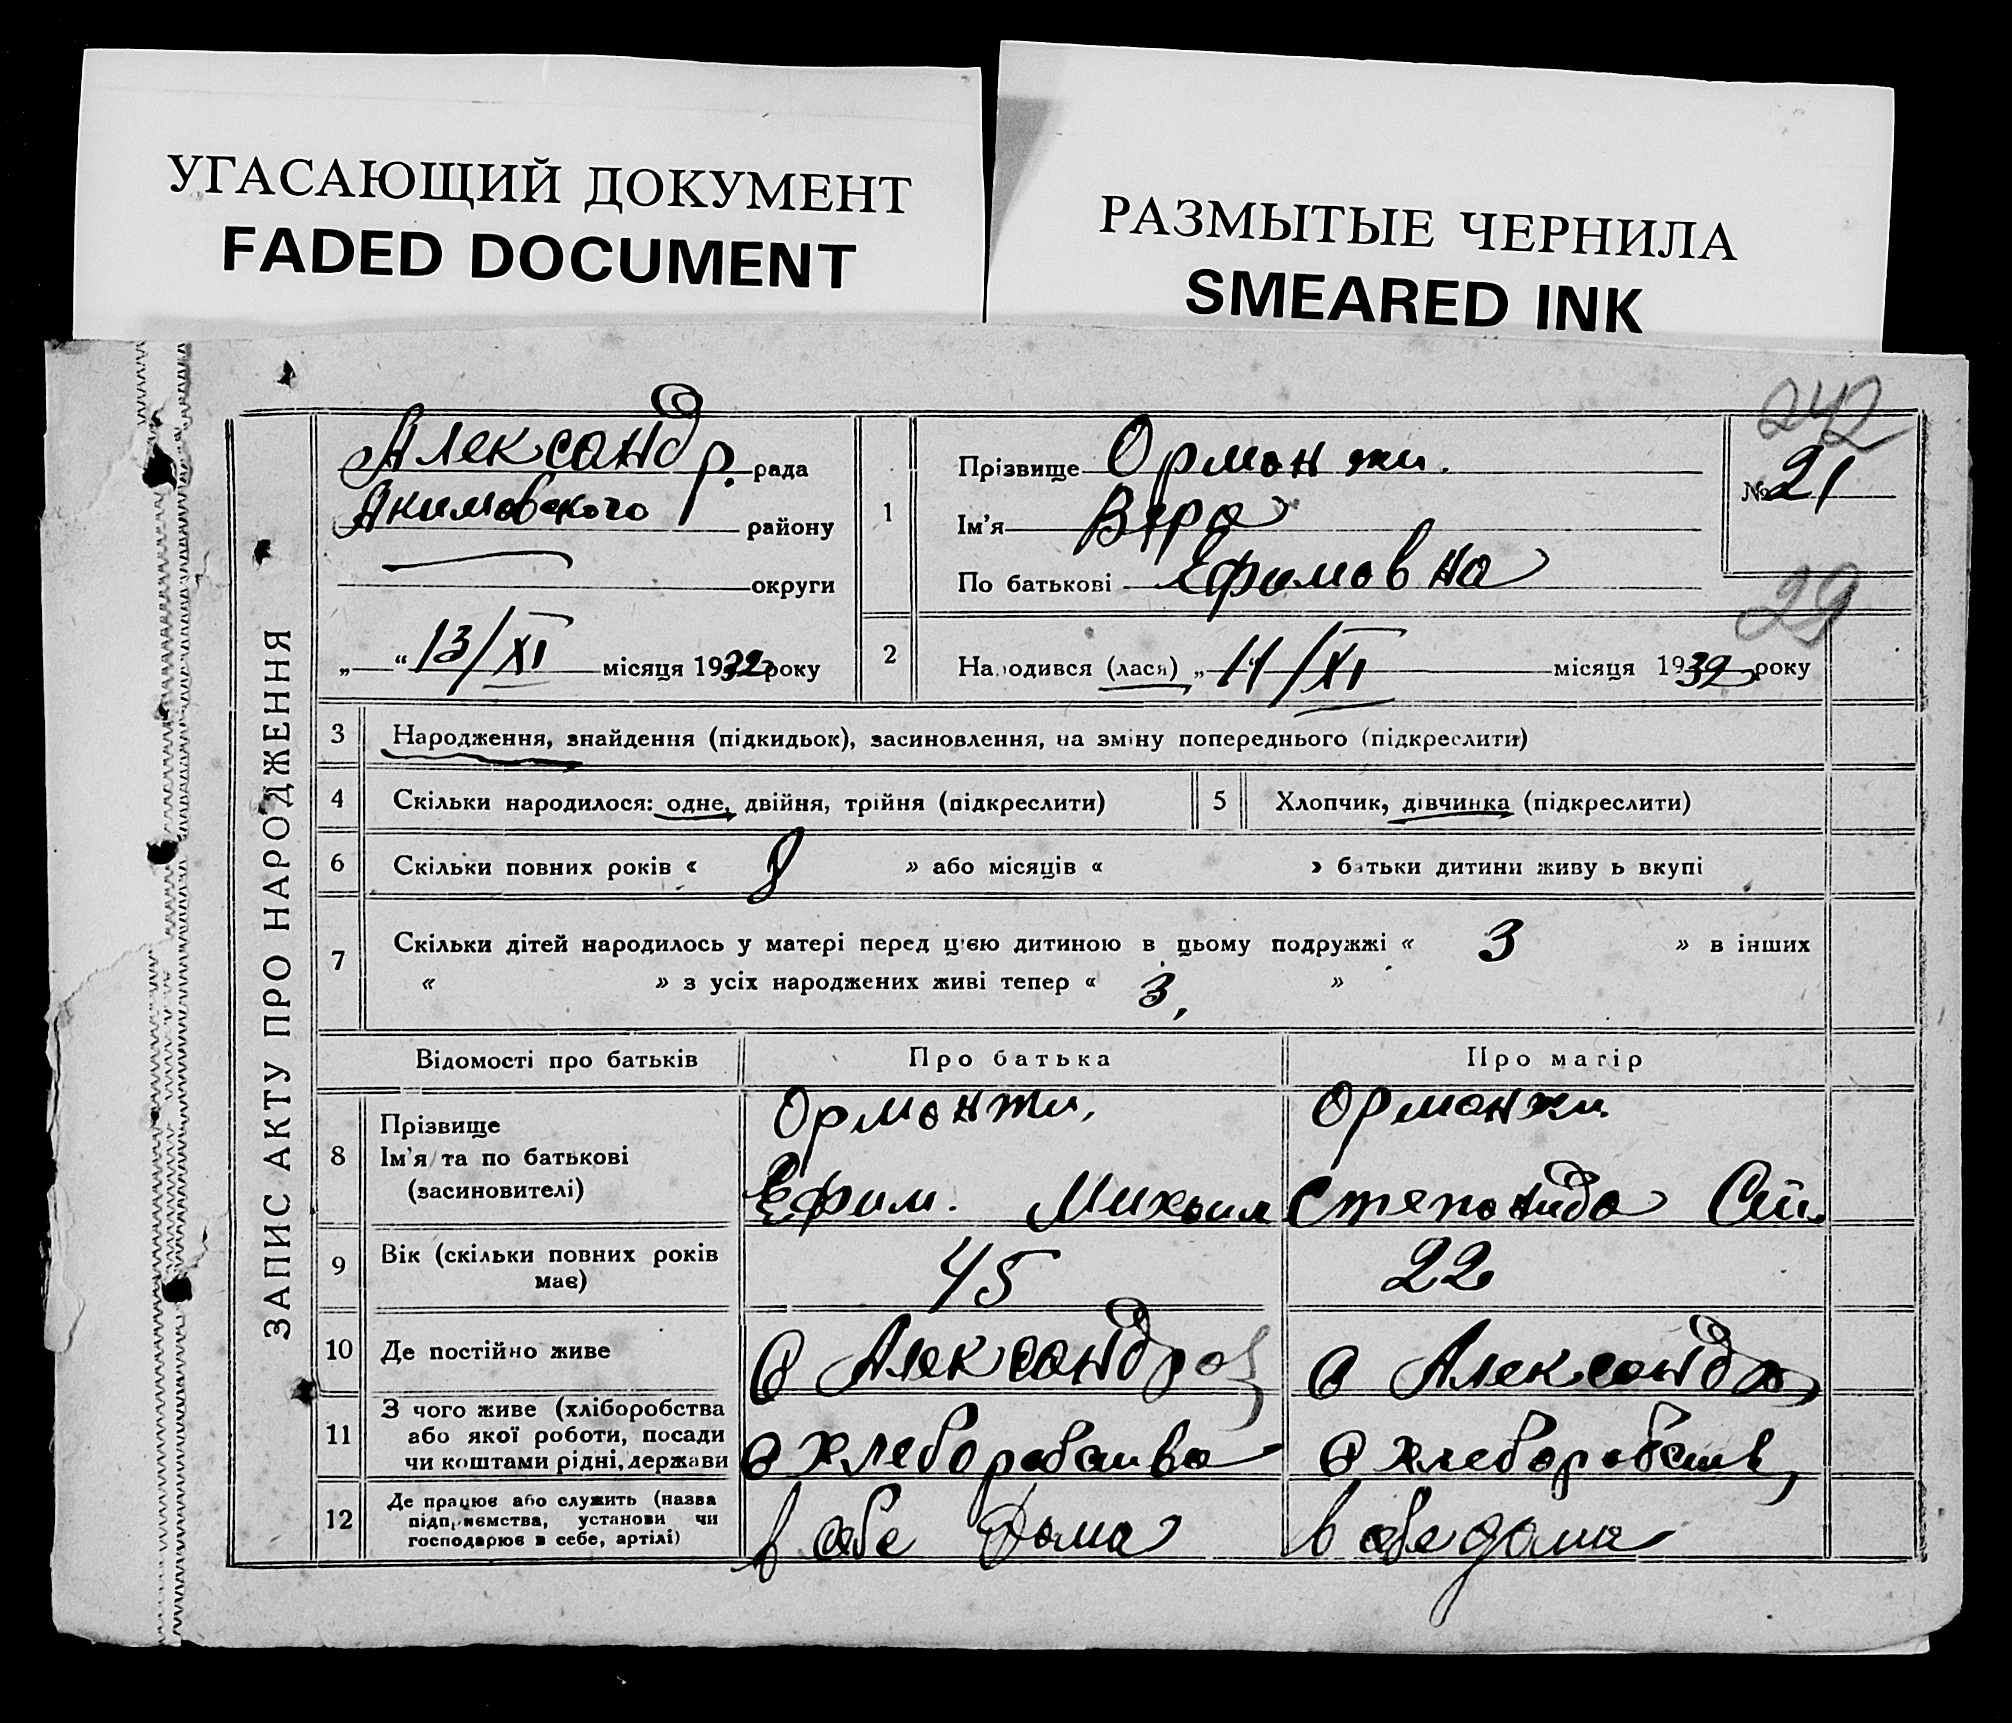 УГАСАЮЩИЙ ДОКУМЕНТ
FADED DOCUMENT
РАЗМЫТЫЕ ЧЕРНИЛА
SMEARED INK
ЗАПИС АКТУ ПРО НАРОДЖЕННЯ
Александр. рада
Акимовского району
округи
„ “ 13/XI місяця 1932 року
242
№ 21
29
1 Прізвище Орманжи.
Ім'я Вера
По батькові Ефимовна
2 Народився (лася) „ 11/XI місяця 1932 року
3 Народження, знайдення (підкидьок), засиновлення, на зміну попереднього (підкреслити)
4 Скільки народилося: одне, двійня, трійня (підкреслити) 5 Хлопчик, дівчинка (підкреслити)
6 Скільки повних років « 8 » або місяців « » батьки дитини живуть вкупі
7 Скільки дітей народилось у матері перед цією дитиною в цьому подружжі « 3 » в інших
« » з усіх народжених живі тепер « 3, »
Відомості про батьків Про батька Про матір
8 Прізвище
Ім'я та по батькові
(засиновителі)
Орманжи,
Ефим. Михаил
Орманжи
Степанида
9 Вік (скільки повних років
має)
45 22
10 Де постійно живе
с Александров с Александр
11 З чого живе (хліборобства
або якої роботи, посади
чи коштами рідні, держави
с хлеборобства с хлеборобств
12 Де працює або служить (назва
підприємства, установи чи
господарює в себе, артілі)
в себе дома в себе дома